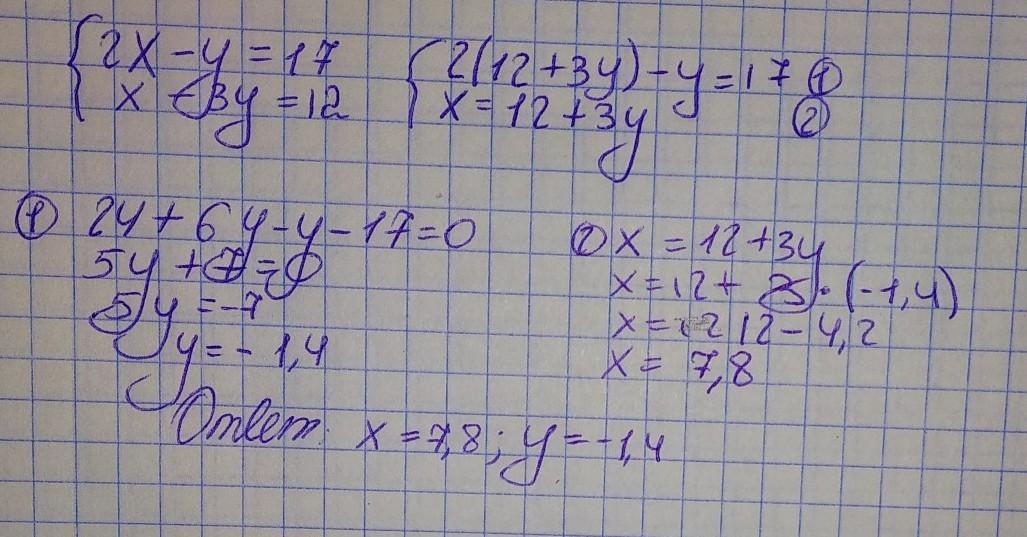 2x - y = 17
x - 3y = 12
2(12 + 3y) - y = 17 ①
x = 12 + 3y ②
① 24 + 6y - y - 17 = 0
5y + 7 = 0
5y = -7
y = - 1,4
② x = 12 + 3y
x = 12 + 3 · (-1,4)
x = 12 - 4,2
x = 7,8
Ответ: x = 7,8; y = -1,4